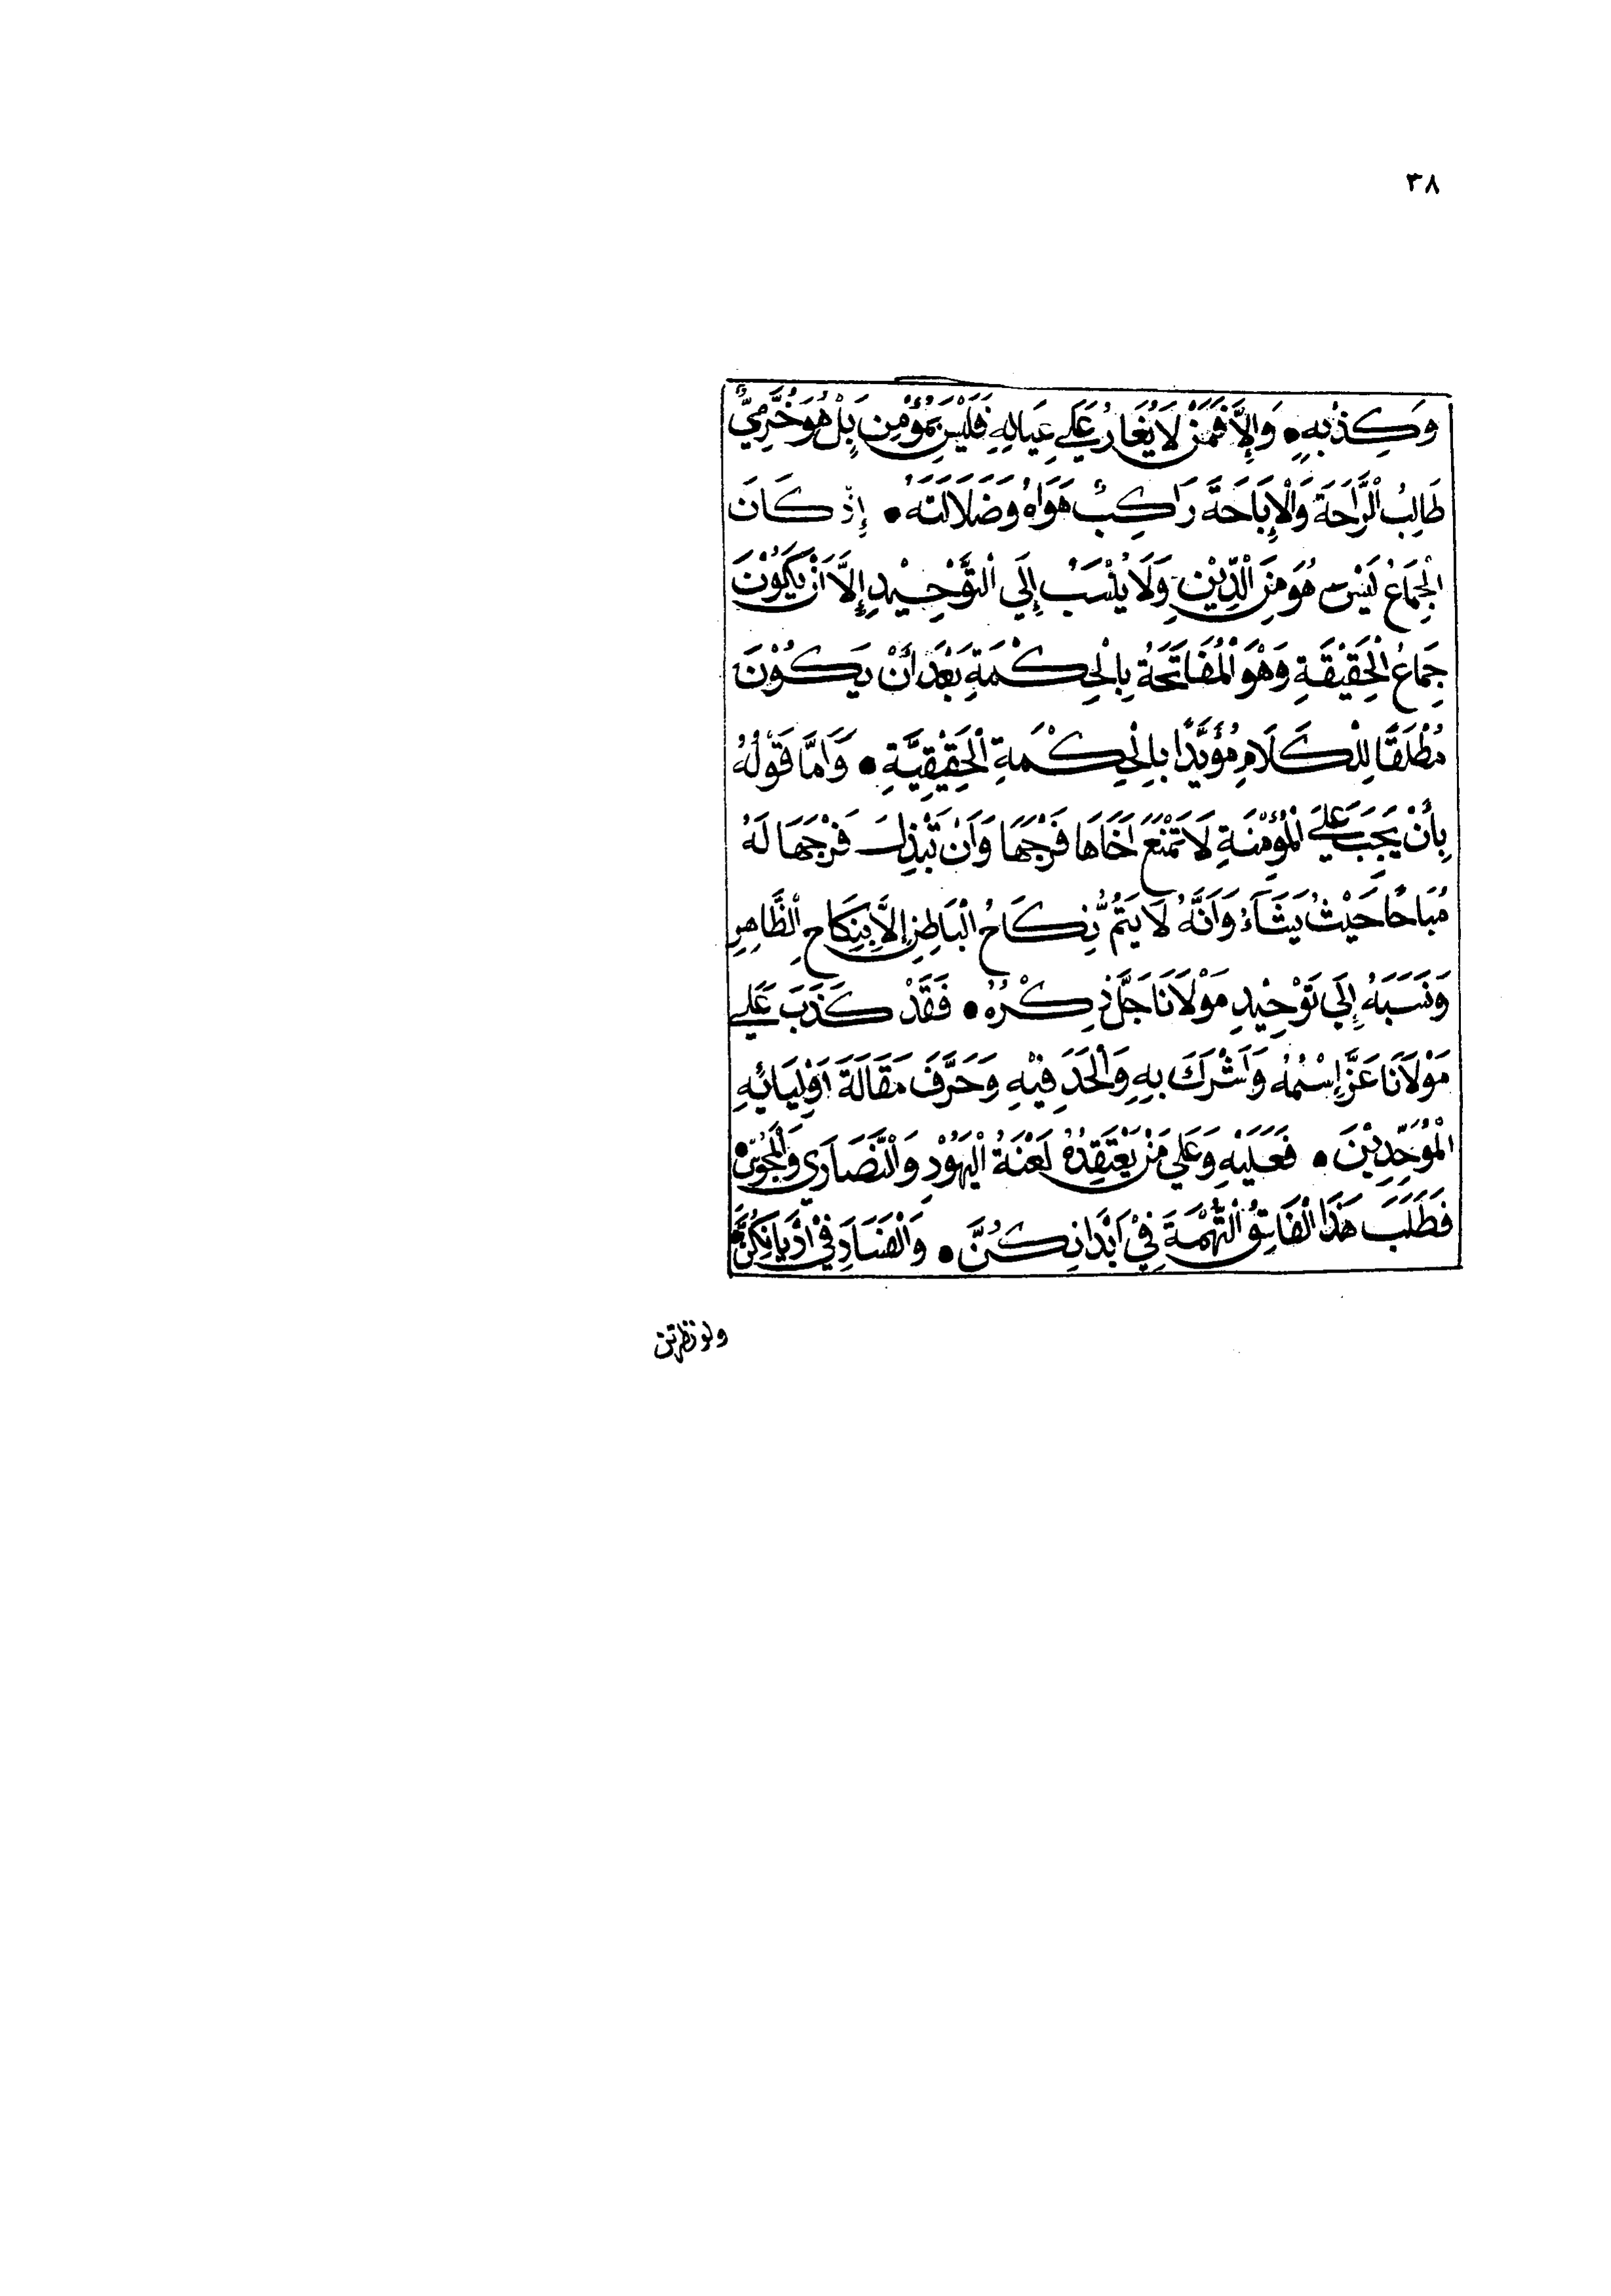 ٣٨
وَكِذْبِهِ • وَإِلَّا فَمَنْ لَا يُغَارُ عَلَى عِيَالِهِ فَلَيْسَ بِمُؤْمِنٍ بَلْ هُوَ خُرَّمِيٌّ
طَالِبُ الرَّاحَةَ وَالْإِبَاحَةَ رَاكِبٌ هَوَاهُ وَضَلَالَتَهُ • إِذْ كَانَ
الْجِمَاعُ لَيْسَ هُوَ مِنَ الدِّيْنِ وَلَا يُنْسَبُ إِلَى التَّوْحِيْدِ إِلَّا أَنْ يَكُوْنَ
جِمَاعُ الْحَقِيْقَةِ وَهُوَ الْمُفَاتَحَةُ بِالْحِكْمَةِ بَعْدَ أَنْ يَكُوْنَ
مُطْلَقًا لِلْكَلَامِ مُؤَيَّدًا بِالْحِكْمَةِ الْحَقِيْقِيَّةِ • وَأَمَّا قَوْلُهُ
بِأَنْ يَجِبَ عَلَى الْمُؤْمِنَةِ لَا تَمْنَعُ أَخَاهَا فَرْجَهَا وَأَنْ تَبْذِلَ فَرْجَهَا لَهُ
مُبَاحًا حَيْثُ يَشَآءُ وَأَنَّهُ لَا يَتُمُّ نِكَاحُ الْبَاطِنِ إِلَّا بِنِكَاحِ الظَّاهِرِ
وَنَسَبَهُ إِلَى تَوْحِيْدِ مَوْلَانَا جَلَّ ذِكْرُهُ • فَقَدْ كَذَبَ عَلَى
مَوْلَانَا عَزَّ إِسْمُهُ وَأَشْرَكَ بِهِ وَأَلْحَدَ فِيْهِ وَحَرَّفَ مَقَالَةَ أَوْلِيَائِهِ
الْمُوَحِّدِيْنَ • فَعَلَيْهِ وَعَلَى مَنْ يَعْتَقِدُهُ لَعْنَةُ الْيَهُوْدِ وَالنَّصَارَى وَالْمَجُوْسِ •
فَطَلَبَ هَذَا الْفَاسِقُ التُّهْمَةَ فِيْ أَبْدَانِكُنَّ • وَالْفَسَادَ فِيْ أَدْيَانِكُنَّ •
ولو نظرتن